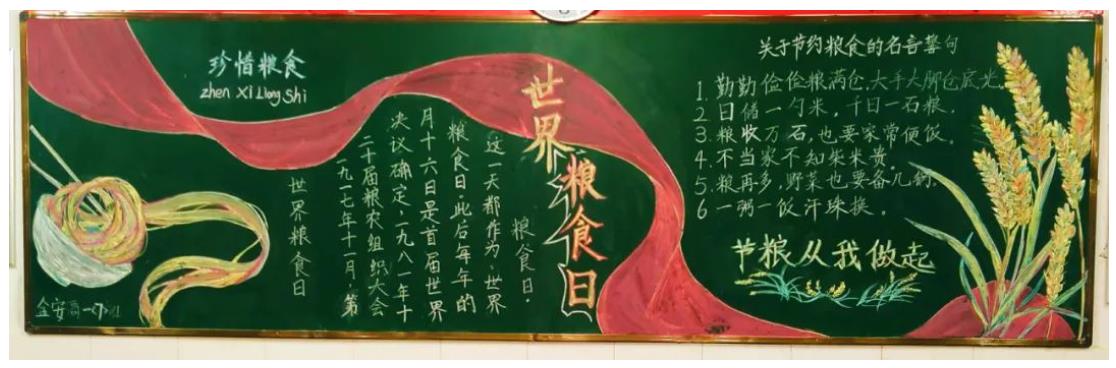 珍惜粮食
zhen XI Liang Shi
世界粮食日
世界粮食日
一九一七年十一月,第
二十届粮农组织大会
决议确定,一九八一年十
月十六日是首届世界
粮食日,此后每年的
这一天都作为“世界
粮食日.
关于节约粮食的名言警句
1.勤勤俭俭粮满仓,大手大脚仓底光。
2日储一勺米,千日一石粮.
3.粮收万石,也要家常便饭。
4.不当家不知柴米贵.
5.粮再多,野菜也要备几锅.
6一粥一饭汗珠换。
节粮从我做起
金安高一<7>班